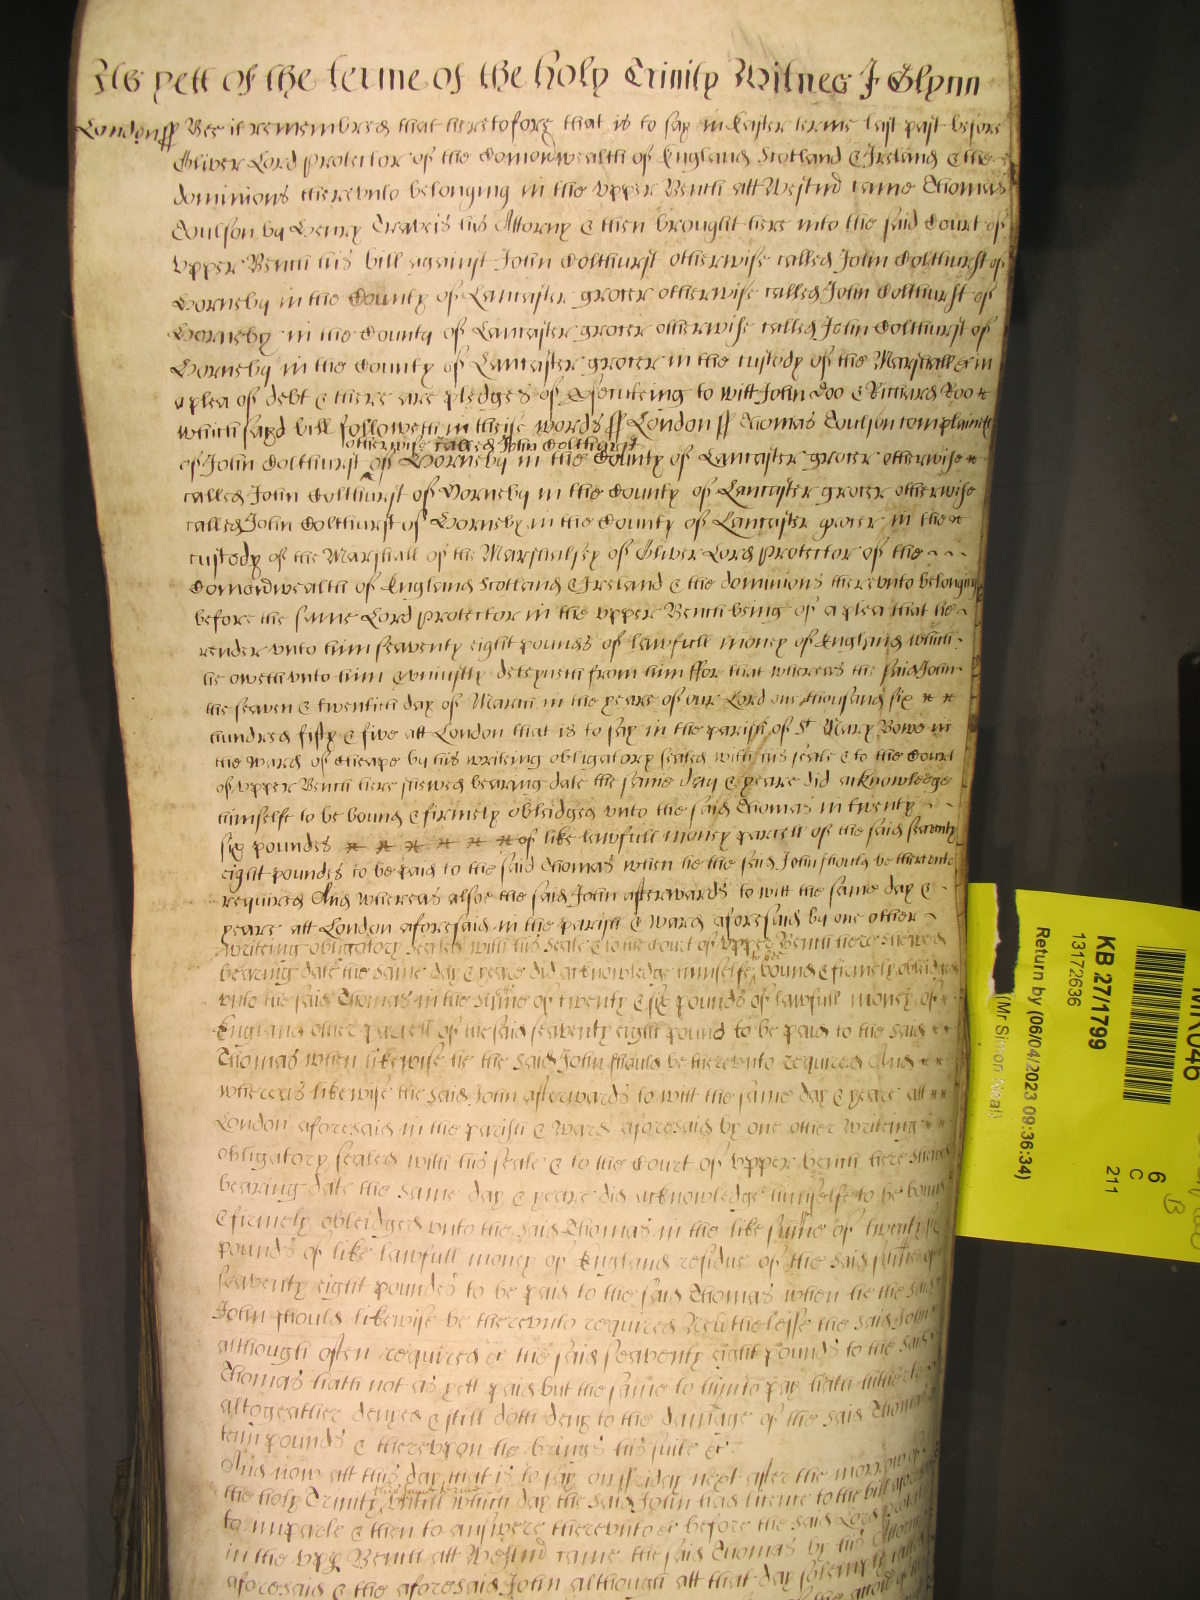 As yett of the terme of the holy Trinity Witnes J Glynn
London ss Bee it remembred that heretofore that is to say in Easter terme last past before
Oliver Lord protector of the Comonwealth of England Scotland & Ireland & the
dominions thereunto belonging in the upper Bench att Westmr came Thomas
Coulson by Henry Traveis his Attorny & then brought here into the said Court of
Upper Bench his bill against John Colthurst otherwise called John Colthurst of
Horneby in the County of Lancaster grocer otherwise called John Colthurst of
Horneby in the County of Lancaster grocer otherwise called John Colthurst of
Horneby in the County of Lancaster grocer in the custody of the Marshall &c in
a plea of debt & there are pledges of prosecuteing to witt John Doo & Richard Roo
which sayd bill followeth in theise words ss London ss Thomas Coulson complaineth
otherwise called John Colthurst
of John Colthurst of Horneby in the County of Lancaster grocer otherwise
called John Colthurst of Horneby in the County of Lancaster grocer otherwise
called John Colthurst of Horneby in the County of Lancaster grocer in the
custody of the Marshall of the Marshalsey of Oliver Lord protector of the
Comonwealth of England Scotland & Ireland & the dominions thereunto belonging
before the same Lord protector in the upper Bench being of a plea that he
render unto him seaventy eight pounds of lawfull money of England which
he oweth unto him & uniustly deteyneth from him ffor that whereas the said John
the seaven & twentieth day of March in the yeare of our Lord one thousand six
hundred fifty & five att London that is to say in the parish of St Mary Bowe in
the ward of Cheape by his writing obligatory sealed with his seale & to the Court
of upper Bench here shewed bearing date the same day & yeare did acknowledge
himselfe to be bound & firmely obleidged unto the said Thomas in twenty
six pounds of like lawfull money parcell of the said seaventy
eight pounds to be paid to the said Thomas when he the said John should be thereunto
required And whereas alsoe the said John afterwards to witt the same day &
yeare att London aforesaid in the parish & ward aforesaid by one other
writeing obligatory sealed with his seale & to the Court of upper Bench here shewed
bearing date the same day & yeare did acknowledge himselfe to bee bound & firmely obleidged
unto the said Thomas in the summe of twenty & six pounds of lawfull money of
England other parcell of the said seaventy eight pound to be paid to the said
Thomas when likewise he the said John should be thereunto required And
whereas likewise the said John afterwards to witt the same day & yeare att
London aforesaid in the parish & ward aforesaid by one other writeing
obligatory sealed with his seale & to the Court of upper bench here shewed
bearing date the same day & yeare did acknowledge himselfe to be bound
& firmely obleidged unto the said Thomas in the like summe of twenty six
pounds of like lawfull money of England residue of the said summe of
seaventy eight pounds to be paid to the said Thomas when he the said
John should likewise be thereunto required Neverthelesse the said John
although often required &c the said seaventy eight pounds to the said
Thomas hath not as yett paid but the same to him to pay hath hitherto
altogeather denyed & still doth deny to the damage of the said Thomas
tenn pounds & thereupon he brings his suite &c
And now att this day that is to say on ffriday next after the morrow of
this same terme
the holy Trinity untill which day the said John had licence to the bill aforesaid
to imparle & then to answere thereunto &c before the said Lord protector
in the upp Bench att Westmr came the said Thomas by his Attorny
aforesaid & the aforesaid John although att that day solemply called
KB 27/1799
13172636
Return by (06/04/2023 09:36:34)
(Mr Simon Neal)
6
C
211